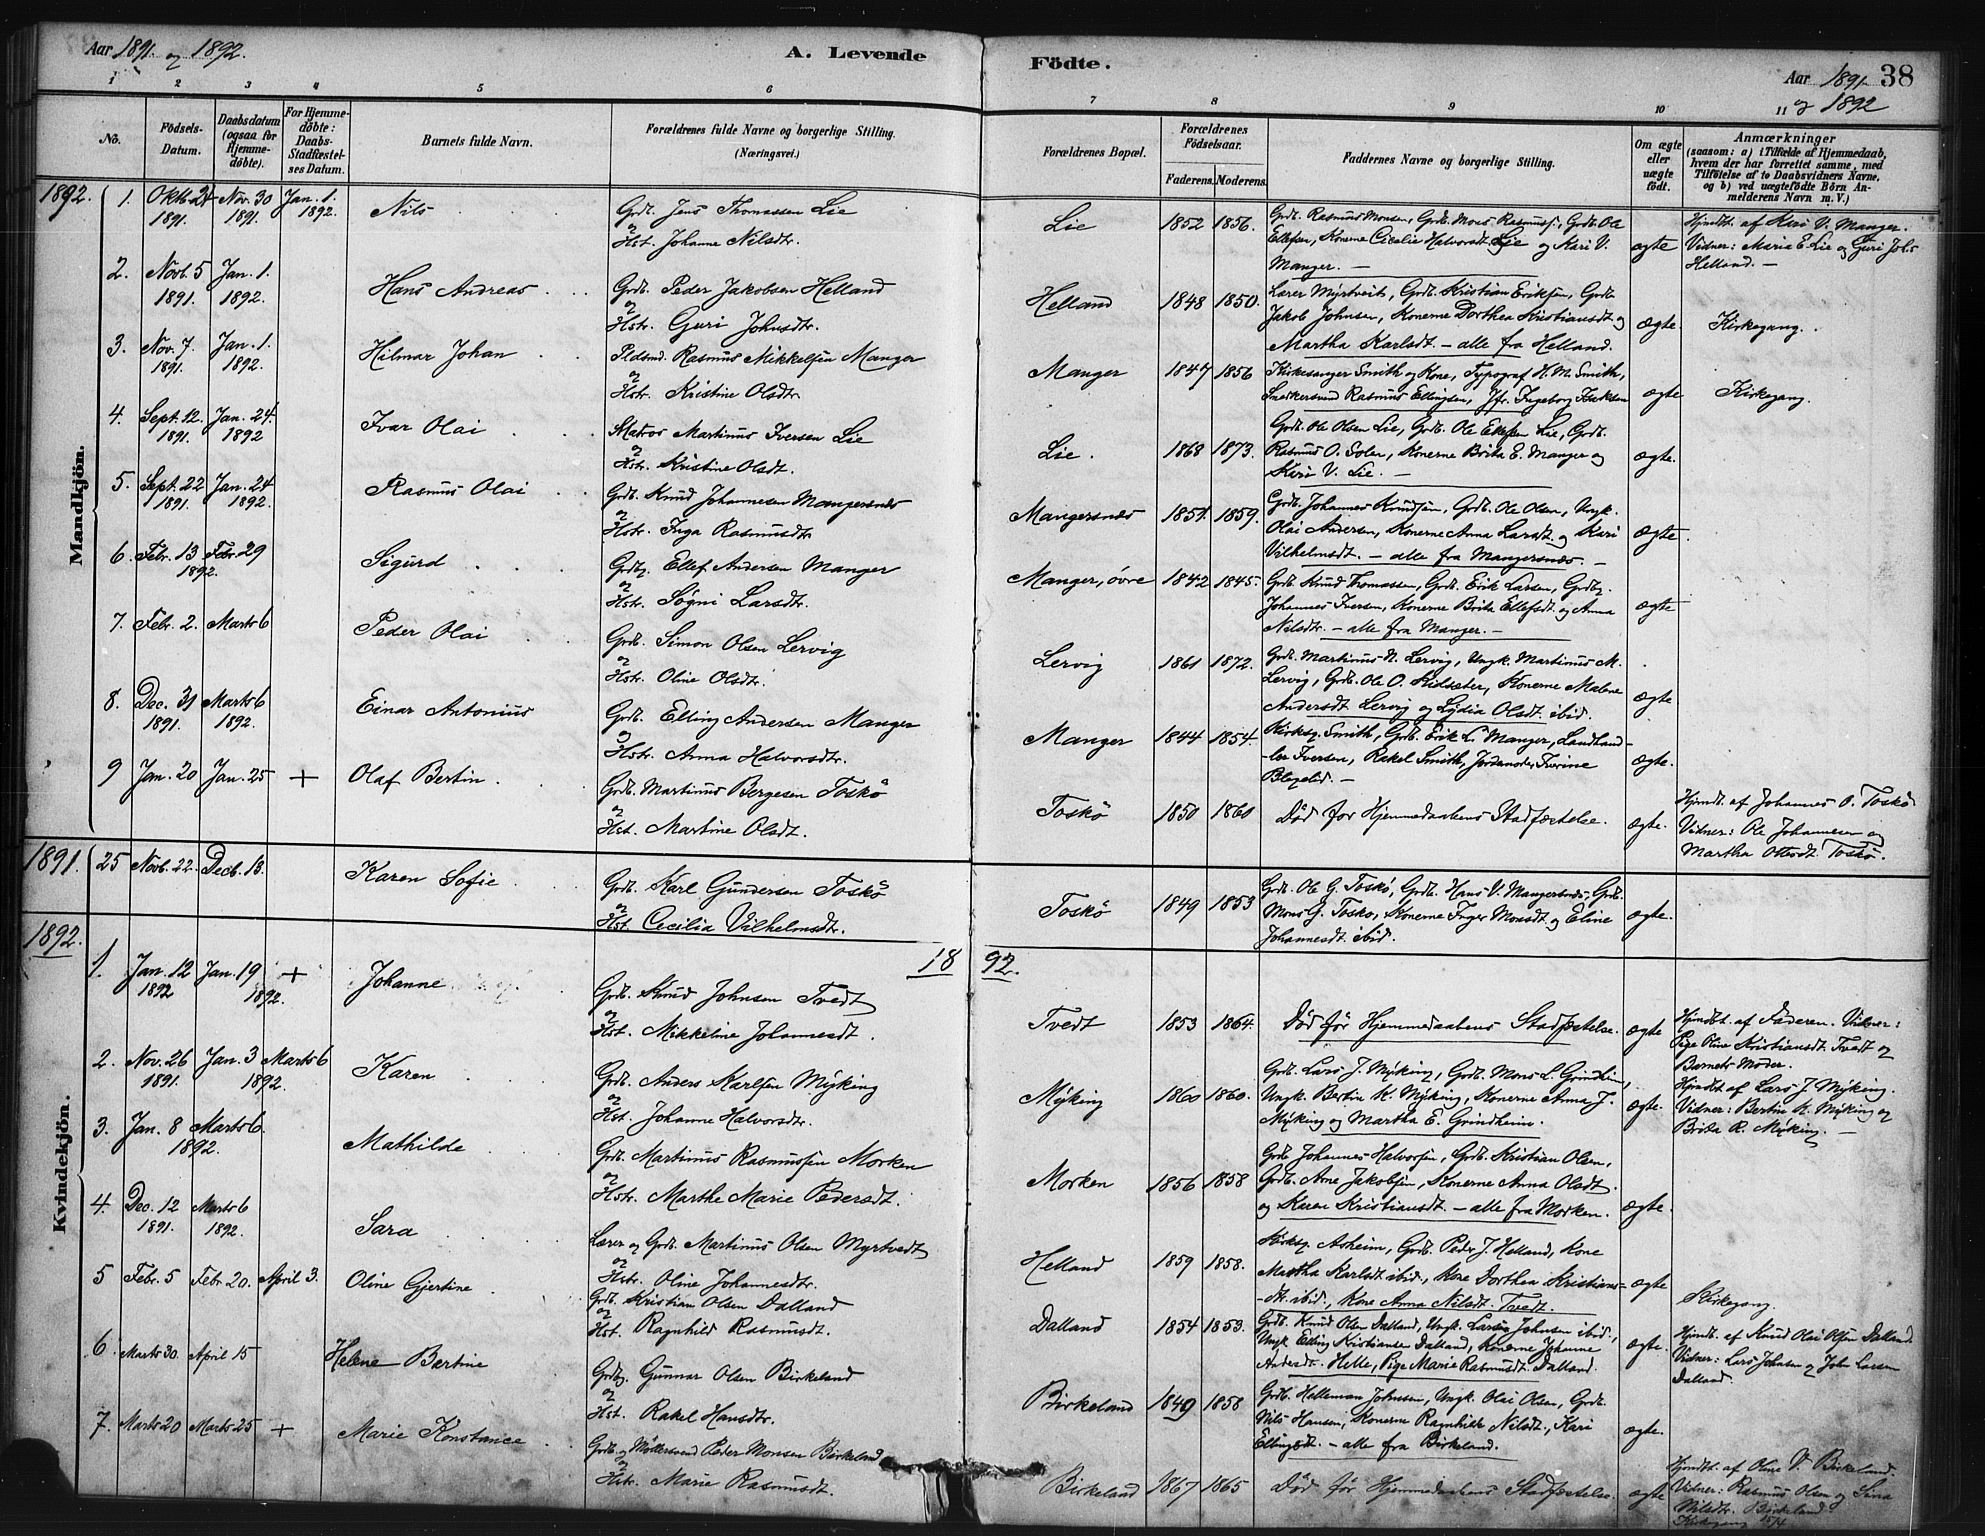 Aar 1891. og 1892.
A. Levende
Födte.
Aar 1891 og 1892
38
1 2 3 4 5 6
7 8 9 10 11
No.
Födsels-Datum.
Daabsdatum (ogsaa for Hjemme-döbte).
For Hjemme-döbte: Daabs-Stadfæstel-ses Datum.
Barnets fulde Navn.
Forældrenes fulde Navne og borgerlige Stilling. (Næringsvei.)
Forældrenes Bopæl.
Forældrenes Födselsaar.
Faderens. Moderens.
Faddernes Navne og borgerlige Stilling.
Om ægte eller uægte födt.
Anmærkninger
(saasom: a) i Tilfælde af Hjemmedaab, hvem der har forrettet samme, med Tilföielse af to Daabsvidners Navne, og b) ved uægtefödte Börn An-melderens Navn m. V.)
Mandkjön.
1892. 1. Oktb. 21 1891. Nov. 30 1891. Jan. 1. 1892. Nils
Grdb. Jens Thomassen Lie
og
Hst. Johanne Nilsdtr.
Lie 1852 1856.
Grdb. Rasmus Monsen, Grdb. Mons Rasmuss., Grdb. Ole
Ellefsen, Konerne Cicelie Halvorsdt. Lie og Kari V.
Manger. —
ægte
Hjmdbt. af Kari V. Manger.
Vidner: Maria E. Lie og Guri Johs.
Helland. —
2. Novb. 5 1891. Jan. 1. 1892. Hans Andreas
Grdb. Peder Jakobsen Helland
og
Hstr. Guri Johnsdtr.
Helland 1848 1850.
Lærer Myrtveit, Grdb. Kristian Eriksen, Grdb.
Jakob Johnsen, Konerne Dorthea Kristiansdt. og
Martha Karlsdt. — alle fra Helland.
ægte. Kirkegang.
3. Nov. 7. 1891. Jan. 1. 1892. Hilmar Johan
Pldsmd. Rasmus Mikkelsen Manger
og
Hstr. Kristine Olsdtr.
Manger 1847 1856
Kirkesanger Smith og Kone, Typograf H. M. Smith,
Snekkersvend Rasmus Ellingsen, Jfr. Ingeborg Isaksen
ægte Kirkegang.
4. Sept. 12. 1891. Jan. 24. 1892 Ivar Olai
Matros Martinus Iversen Lie
og
Hstr. Kristine Olsdt.
Lie. 1868 1873.
Grdb. Ole Olsen Lie, Grdb. Ole Ellefsen Lie, Grdb.
Rasmus O. Toler, Konerne Brita E. Manger og
Kari V. Lie. —
ægte.
5. Sept. 22 1891. Jan. 24 1892. Rasmus Olai
Grdb. Knud Johannesen Mangersnæs
og
Hstr. Inga Rasmusdtr.
Mangersnæs 1857. 1859.
Grdb. Johannes Knudsen, Grdb. Ole Olsen, Ungk.
Olai Andersen, Konerne Anna Larsdt. og Kari
Vilhelmsdt. — alle fra Mangersnæs. —
ægte.
6. Febr. 13 Febr. 29 1892. Sigurd
Grdbg. Ellef Andersen Manger
og
Hstr. Søgni Larsdtr.
Manger, övre 1842 1845.
Grdb. Knud Thomassen, Grdb. Erik Larsen, Grdbg.
Johannes Iversen, Konerne Brita Ellefsdt. og Anna
Nilsdtr. — alle fra Manger. —
ægte
7. Febr. 2. Marts 6 Peder Olai
Grdb. Simon Olsen Lervig
og
Hstr. Oline Olsdt.
Lervig 1861 1872.
Grdb. Martinus N. Lervig, Ungk. Martinus M.
Lervig, Grdb. Ole O. Kidsæter, Konerne Malene
Andersdt. Lervig og Lydia Olsdt. ibid.
ægte
8. Dec. 31 1891. Marts 6 1892. Einar Antonius
Grdb. Elling Andersen Manger
og
Hstr. Anna Halvorsdtr.
Manger 1844 1854.
Kirksg. Smith, Grdb. Erik L. Manger, Landhand-
-ler Iversen, Rakel Smith, Jordemoder Iverine
ægte.
9 Jan. 20 Jan. 25 + Olaf Bertin.
Grdb. Martinus Bergesen Toskö
og
Hst. Martine Olsdt.
Toskö 1850 1860 Död før Hjemmedaabens Stadfæstelse. ægte.
Hjmdt. af Johannes O. Toskö
Vidner: Ole Johannesen og
Martha Ottesdt. Toskö.
Kvindekjön.
1891. 25 Novb. 22. Decb. 13. Karen Sofie
Grdb. Karl Gundersen Toskö
og
Hst. Cecilia Vilhelmsdtr.
Toskö 1849 1853
Grdb. Ole G. Toskö, Grdb. Hans V. Mangersnæs, Grdb.
Mons G. Toskö, Konerne Inger Monsdt. og Eline
Johannesdt. ibid.
ægte.
1892. 1892.
1. Jan. 12 1892 Jan. 19 1892. + Johanne
Grdb. Knud Johnsen Tvedt
og
Hst. Mikkeline Johannesdt.
Tvedt 1853 1864. Död før Hjemmedaabens Stadfæstelse. ægte
Hjmdbt. af Faderen. Vidner:
Pige Oline Kristiansdt. Tvedt og
Barnets Moder.
2. Nov. 26 1891. Jan. 3 1892. Marts 6 Karen
Grdb. Anders Karlsen Mýking
og
Hst. Johanne Halvorsdtr.
Mýking 1860 1860.
Grdb. Lars J. Mýking, Grdb. Mons L. Grindheim,
Ungk. Bertin K. Mýking, Konerne Anna J.
Mýking og Martha E. Grindheim.
ægte.
Hjmdt. af Lars J. Mýking.
Vidner: Bertin K. Mýking og
Brita R. Mýking. —
3. Jan. 8 Marts 6. 1892. Mathilde
Grdb. Martinus Rasmussen Morken
og
Hstr. Marthe Marie Pedersdt.
Morken 1856 1858
Grdb. Johannes Halvorsen, Grdb. Kristian Olsen,
Grdb. Arne Jakobsen, Konerne Anna Olsdt.
og Karen Kristiansdt. — alle fra Morken.
ægte.
4. Dec. 12 1891. Marts 6 1892. Sara
Lærer og Grdb. Martinus Olsen Myrtvedt
og
Hstr. Oline Johannesdtr.
Helland 1859 1858.
Kirksg. Asheim, Grdb. Peder J. Helland, Kone
Martha Karlsdt. ibid., Kone Dorthea Kristians-
-dt. ibid., Kone Anna Nilsdt. Tvedt.
ægte
Kirkegang.
5 Febr. 5 Febr. 20. April 3. Oline Gjertine
Grdb. Kristian Olsen Dalland
og
Hst. Ragnhild Rasmusdt.
Dalland 1854 1853.
Grdb. Knud Olsen Dalland, Ungk. Lars Johnsen ibid.,
Ungk. Elling Kristiansen Dalland, Konerne Johanne
Andersdt. Helle, Pige Marie Rasmusdt. Dalland.
ægte.
Hjmdt. af Knud Olai Olsen Dalland.
Vidner: Lars Johnsen og John Larsen
Dalland.
6. Marts 30. April 15 Helene Bertine
Grdbg. Gunnar Olsen Birkeland
og
Hst. Rakel Hansdtr.
Birkeland 1849 1858
Grdb. Helleman Johnsen, Ungk. Olai Olsen, Grdb.
Nils Hansen, Konerne Ragnhilde Nilsdt., Kari
Ellingsdt. — alle fra Birkeland.
ægte.
7. Marts 20 Marts 25 + Marie Konstance
Grdb. og Møllersvend Peder Monsen Birkeland
og
Hstr. Marie Rasmusdt.
Birkeland 1867 1865 Död før Hjemmedaabens Stadfæstelse. ægte
Hjmdbt. af Oline V. Birkeland.
Vidner: Rasmus Olsen og Sina
Nilsdtr. Birkeland.
Kirkegang 15/4